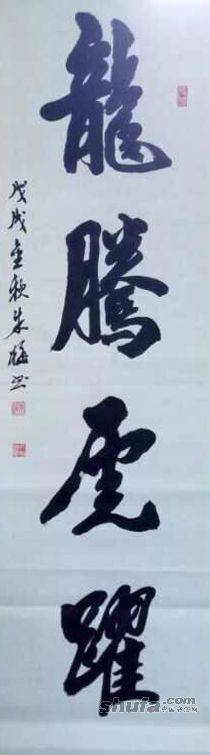 龍騰虎躍
戊戌金秋朱梅
shufa.com